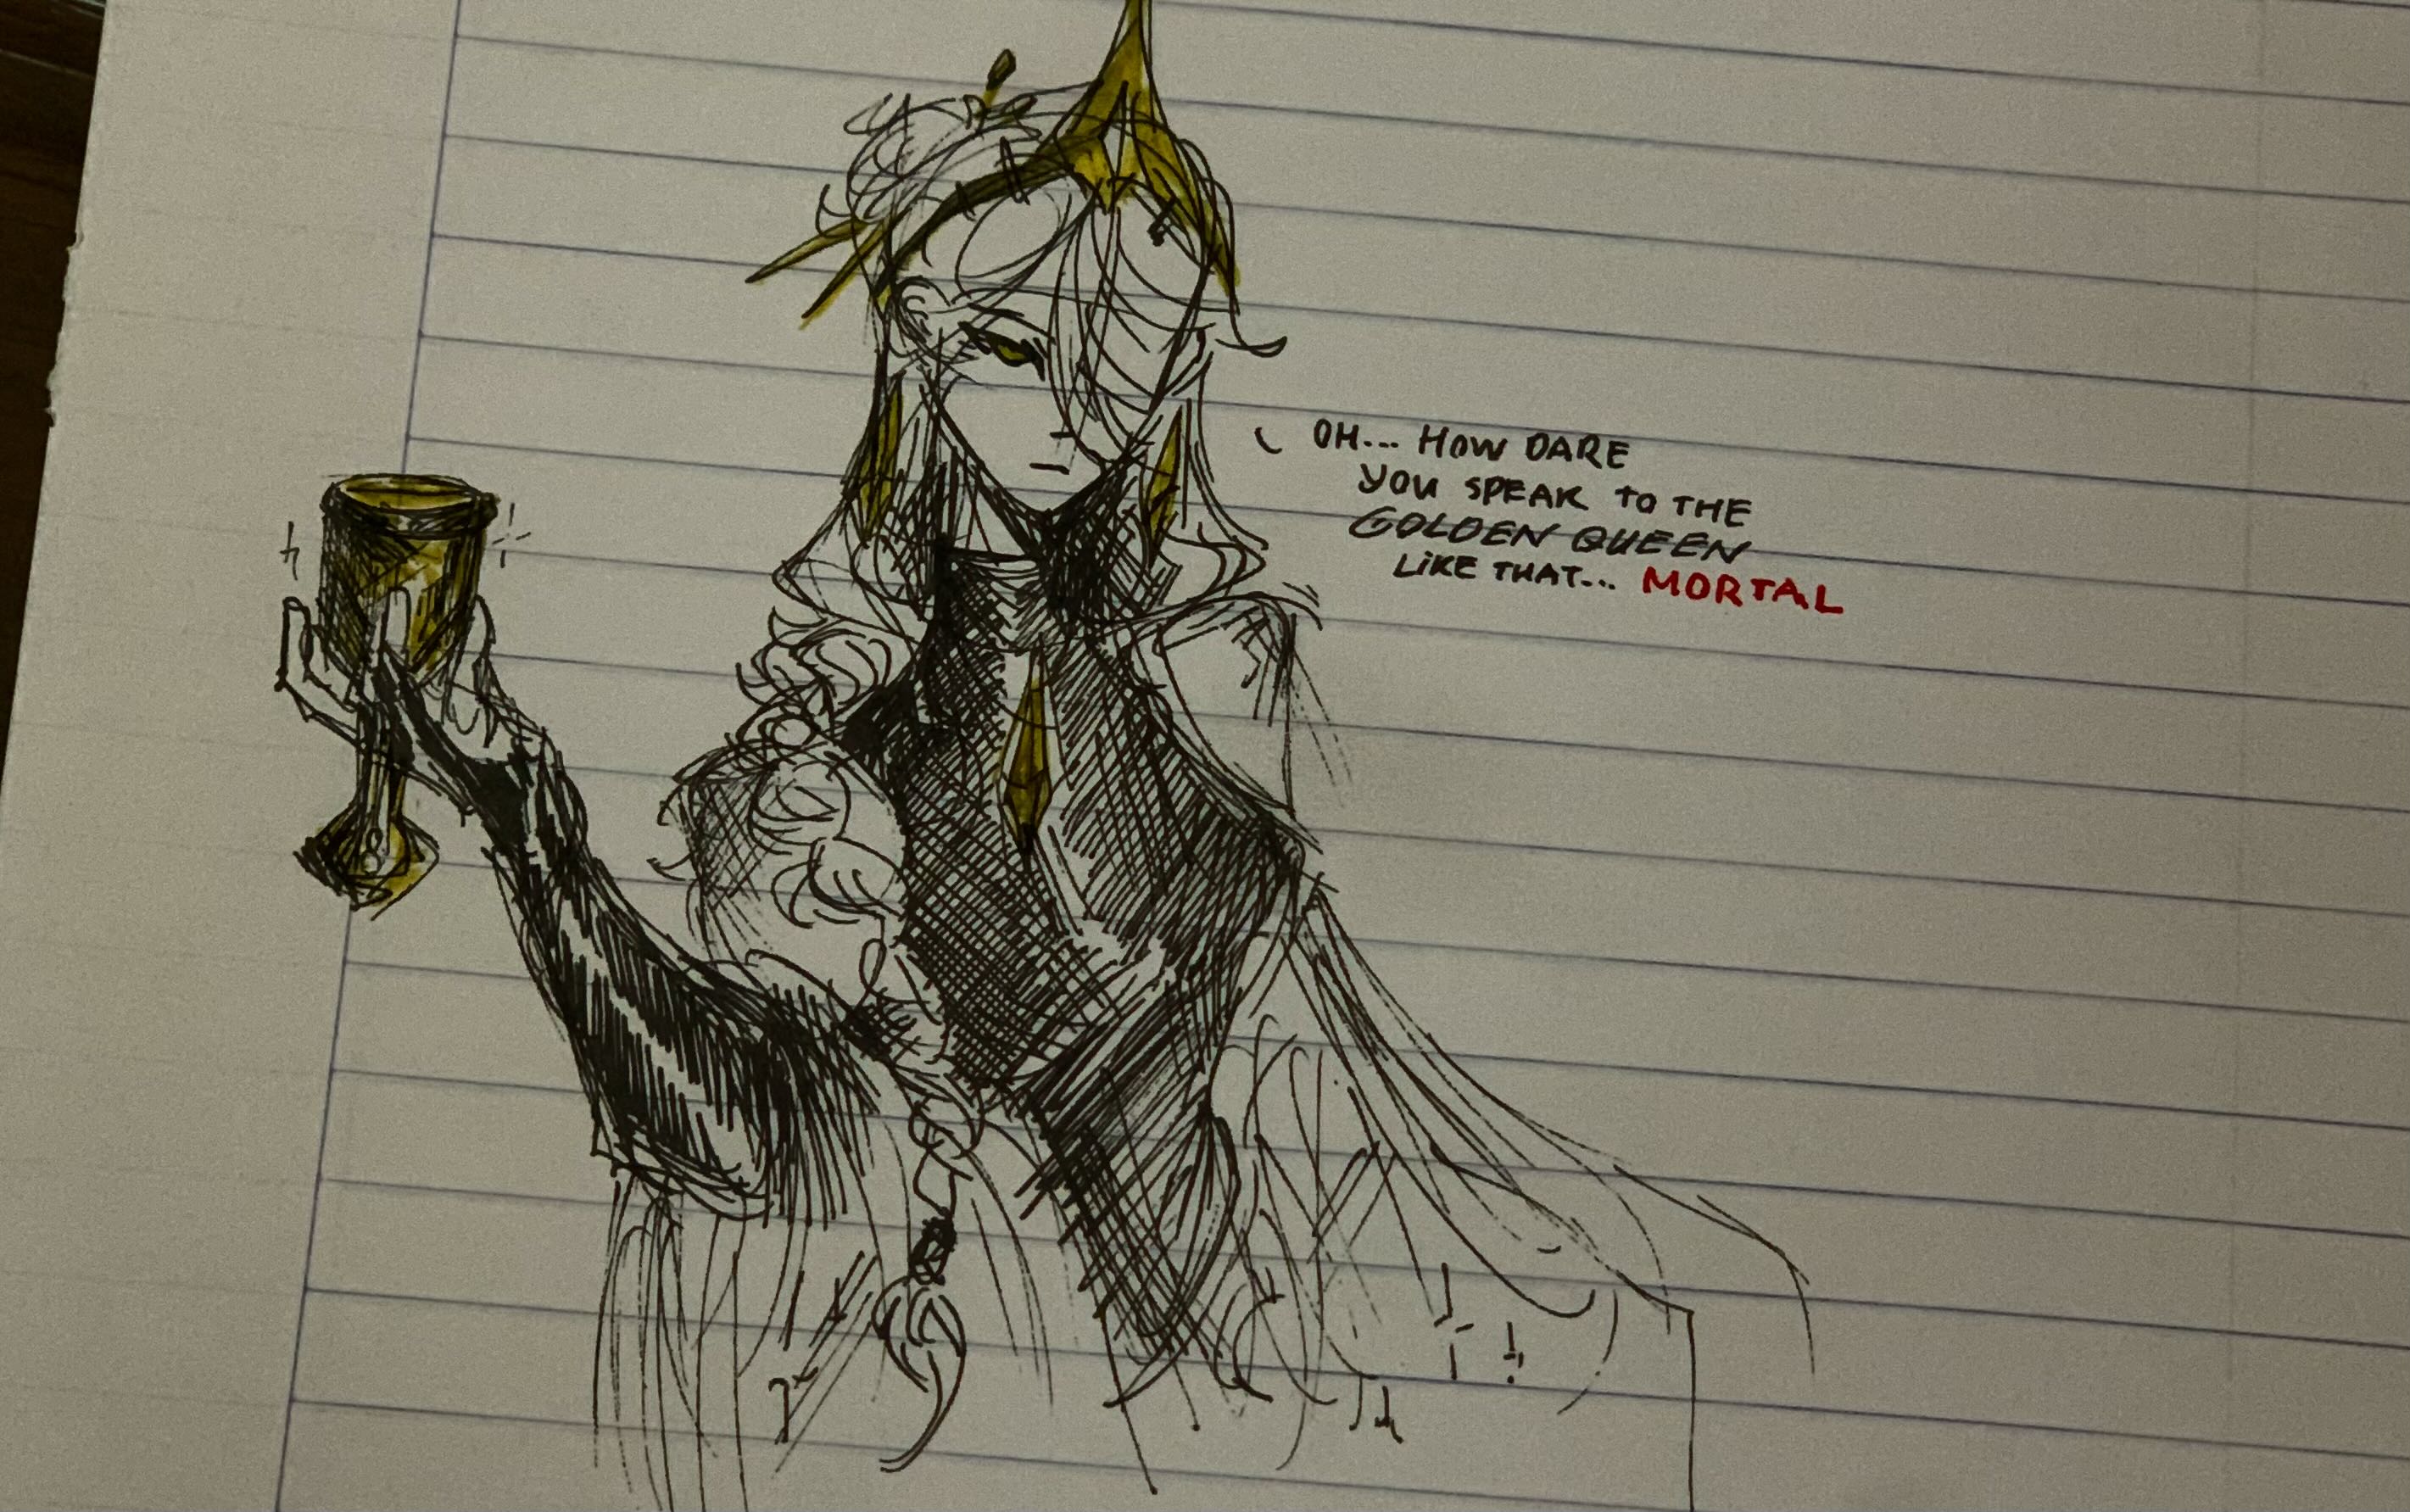 OH... HOW DARE
YOU SPEAK TO THE
GOLDEN QUEEN
LIKE THAT... MORTAL